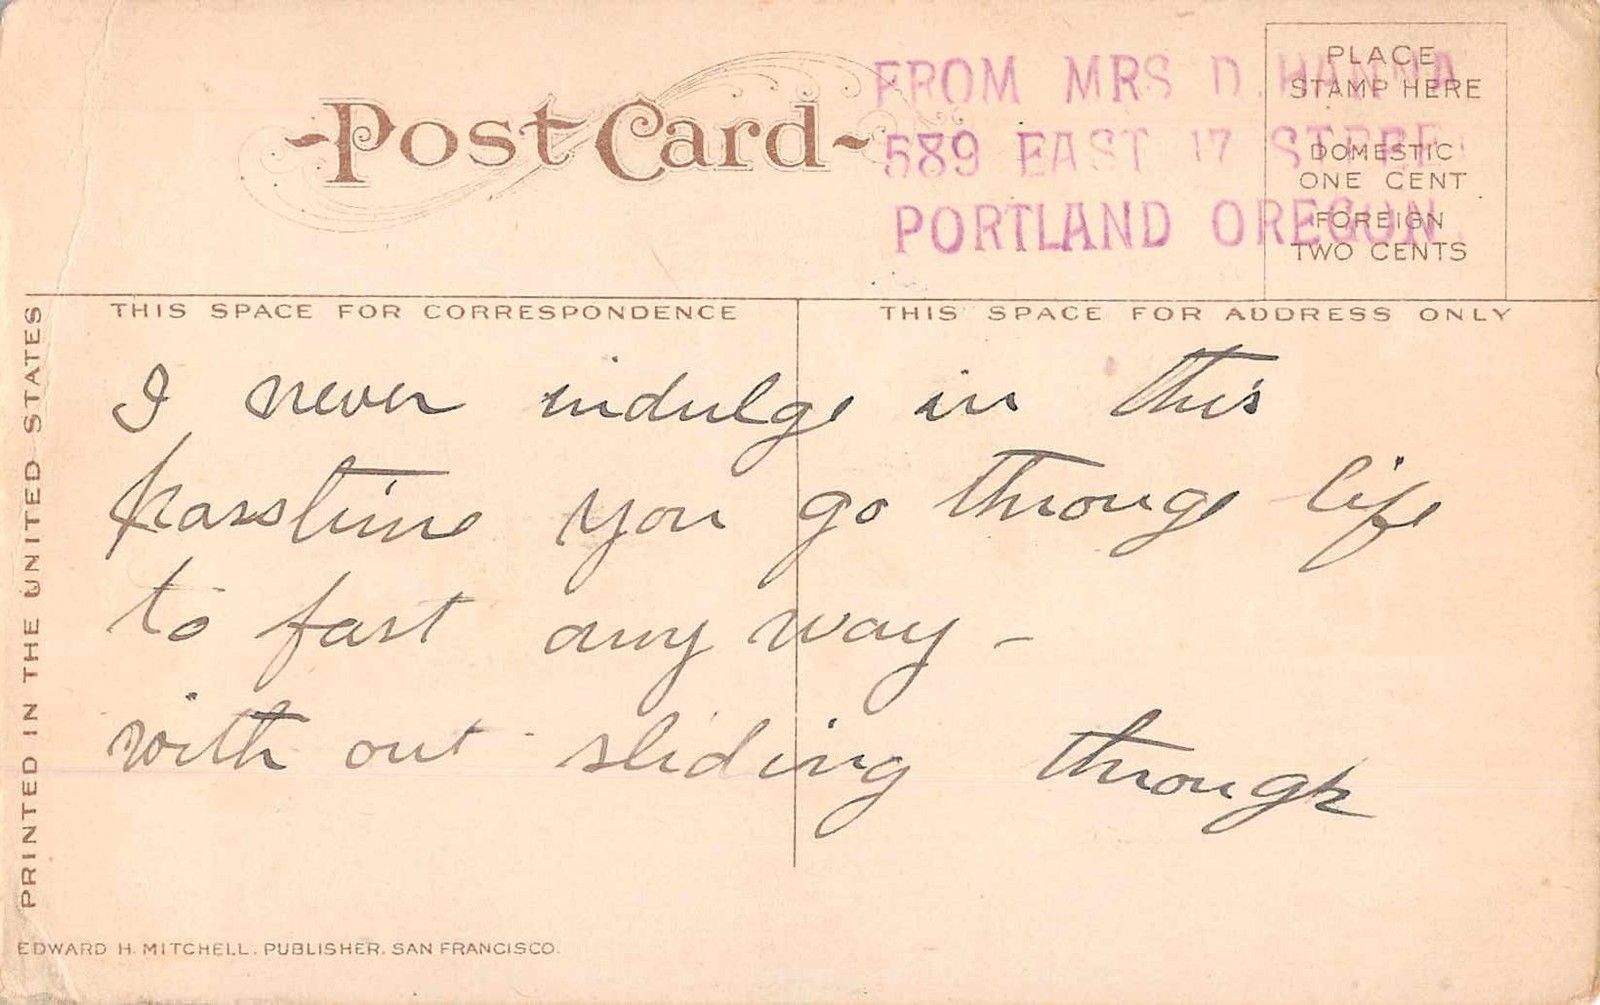 Post Card
FROM MRS D. HANNA
589 EAST 17 STREE
PORTLAND OREGON
PLACE
STAMP HERE
DOMESTIC
ONE CENT
FOREIGN
TWO CENTS
THIS SPACE FOR CORRESPONDENCE
THIS SPACE FOR ADDRESS ONLY
PRINTED IN THE UNITED STATES
I never indulge in this
passtime you go througe life
to fast any way -
with out sliding through
EDWARD H. MITCHELL, PUBLISHER, SAN FRANCISCO.